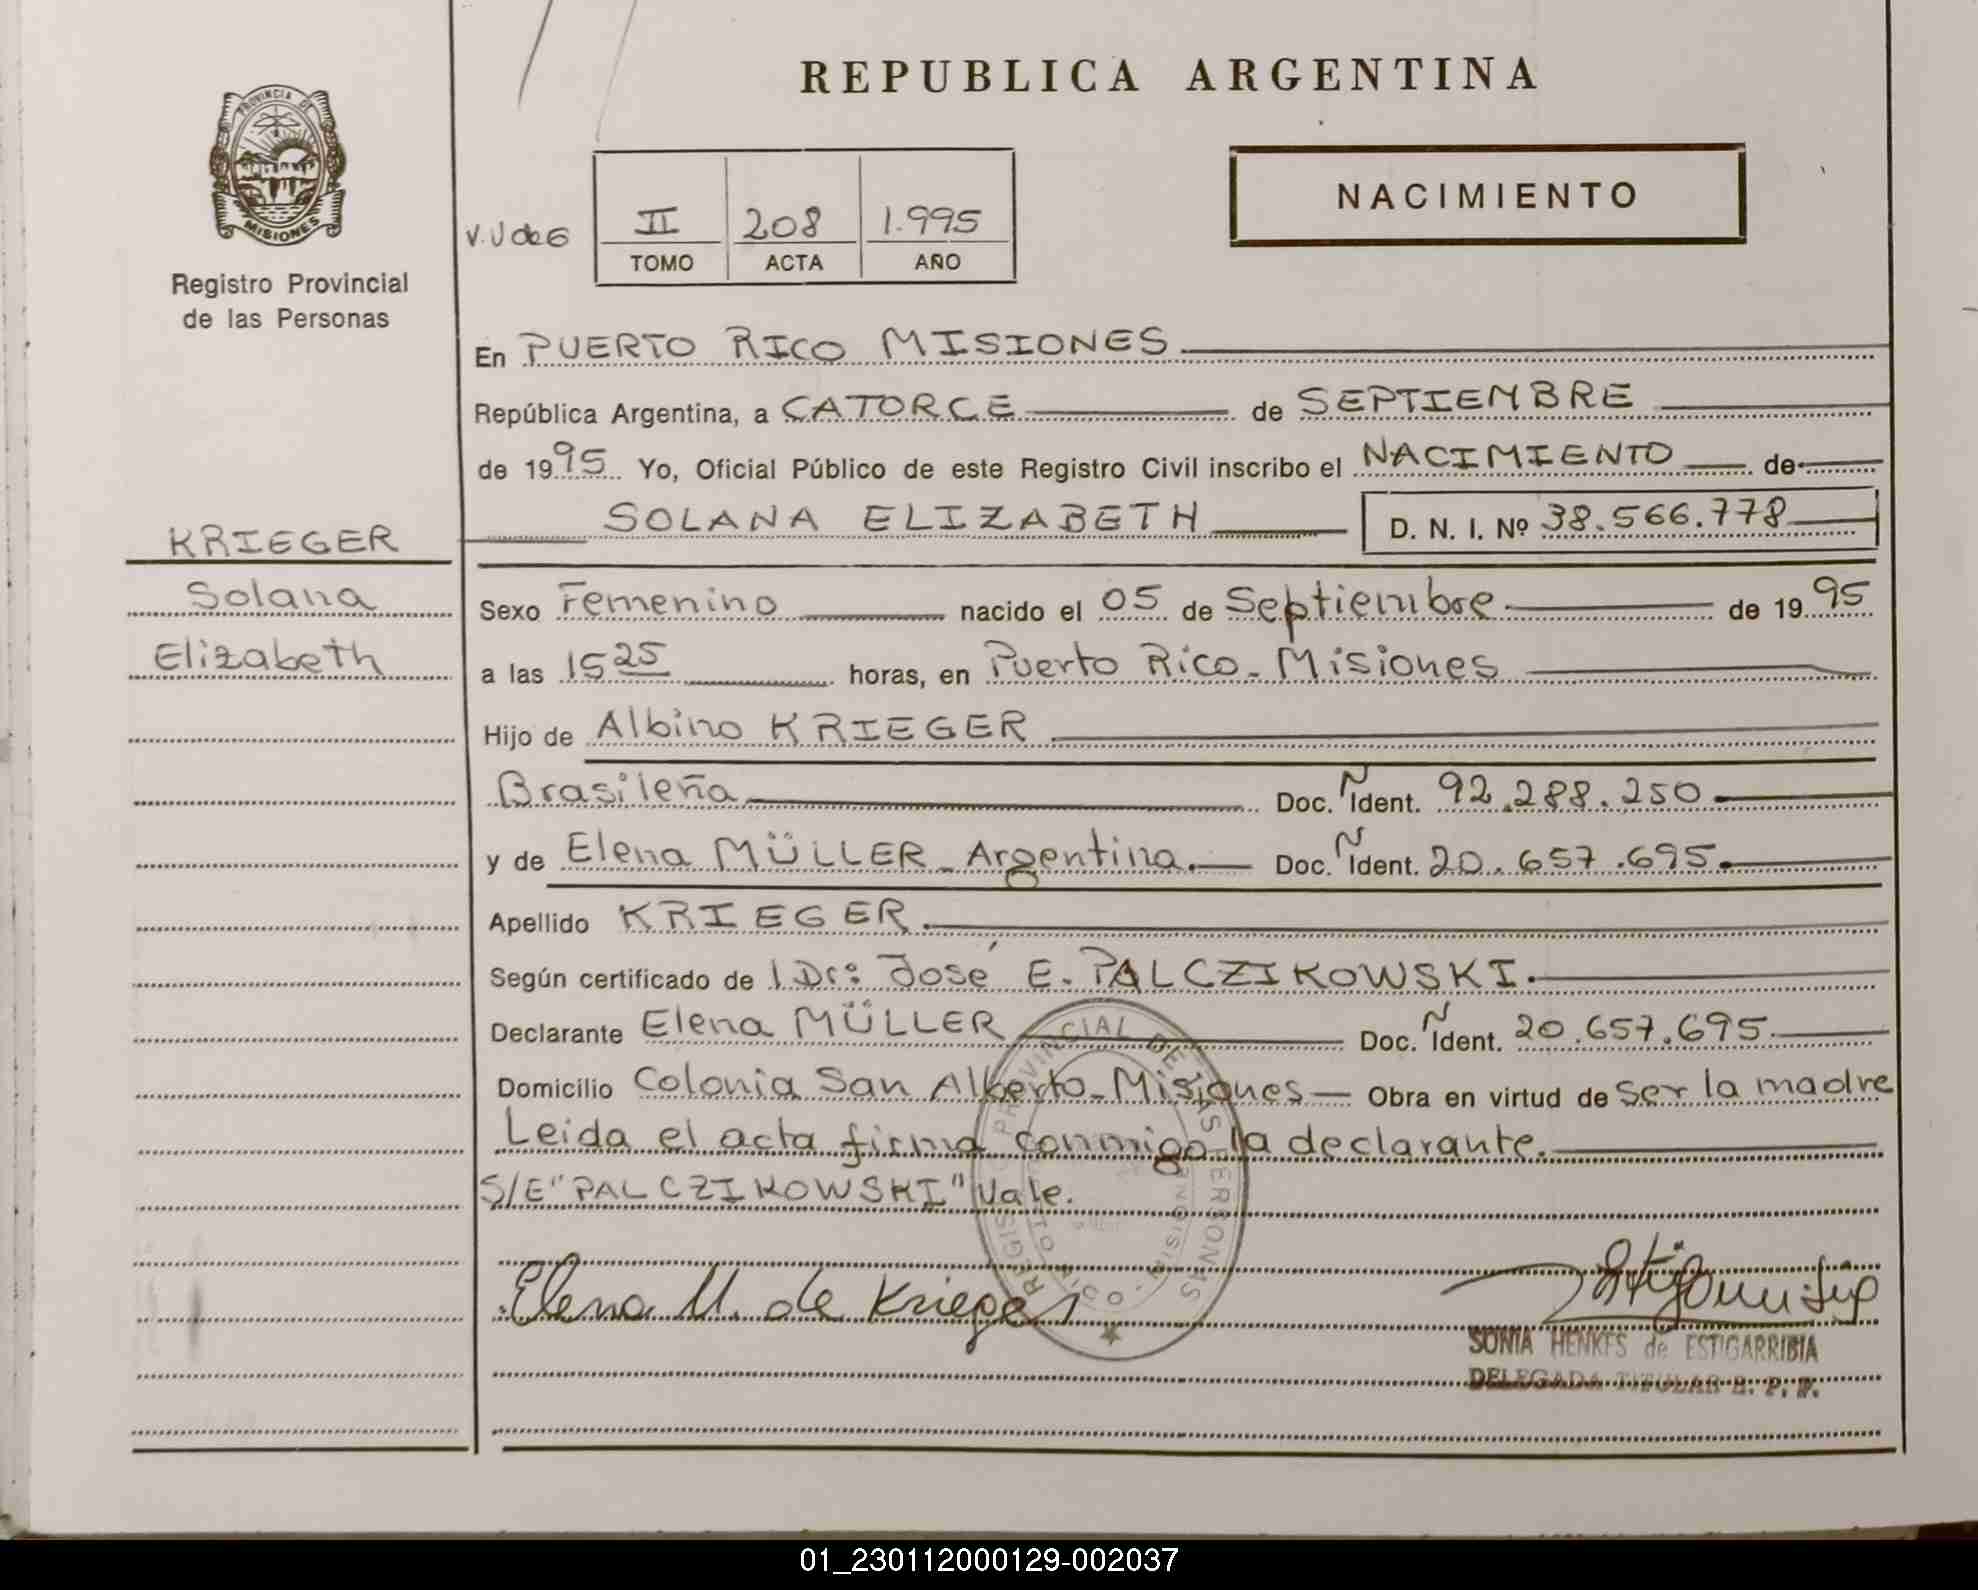 REPUBLICA ARGENTINA
PROVINCIA DE
MISIONES
NACIMIENTO
V. J de G
II 208 1.995
TOMO ACTA AÑO
Registro Provincial
de las Personas
En PUERTO RICO MISIONES
República Argentina, a CATORCE de SEPTIEMBRE
de 1995 Yo, Oficial Público de este Registro Civil inscribo el NACIMIENTO de
SOLANA ELIZABETH D. N. I. Nº 38.566.778
KRIEGER
Solana
Elizabeth
Sexo Femenino nacido el 05 de Septiembre de 1995
a las 15 25 horas, en Puerto Rico - Misiones
Hijo de Albino KRIEGER
Brasileña Doc. Ident. 92.288.250
y de Elena MÜLLER - Argentina. Doc. Ident. 20.657.695.
Apellido KRIEGER.
Según certificado de l Dr: José E. PALCZIKOWSKI.
Declarante Elena MÜLLER Doc. Ident. 20.657.695
Domicilio Colonia San Alberto - Misiones Obra en virtud de ser la madre
Leida el acta firma conmigo la declarante.
S/E "PALCZIKOWSKI" Vale.
Elena M. de Krieger
SONIA HENKES de ESTIGARRIBIA
DELEGADA TITULAR R. P. P.
01_230112000129-002037